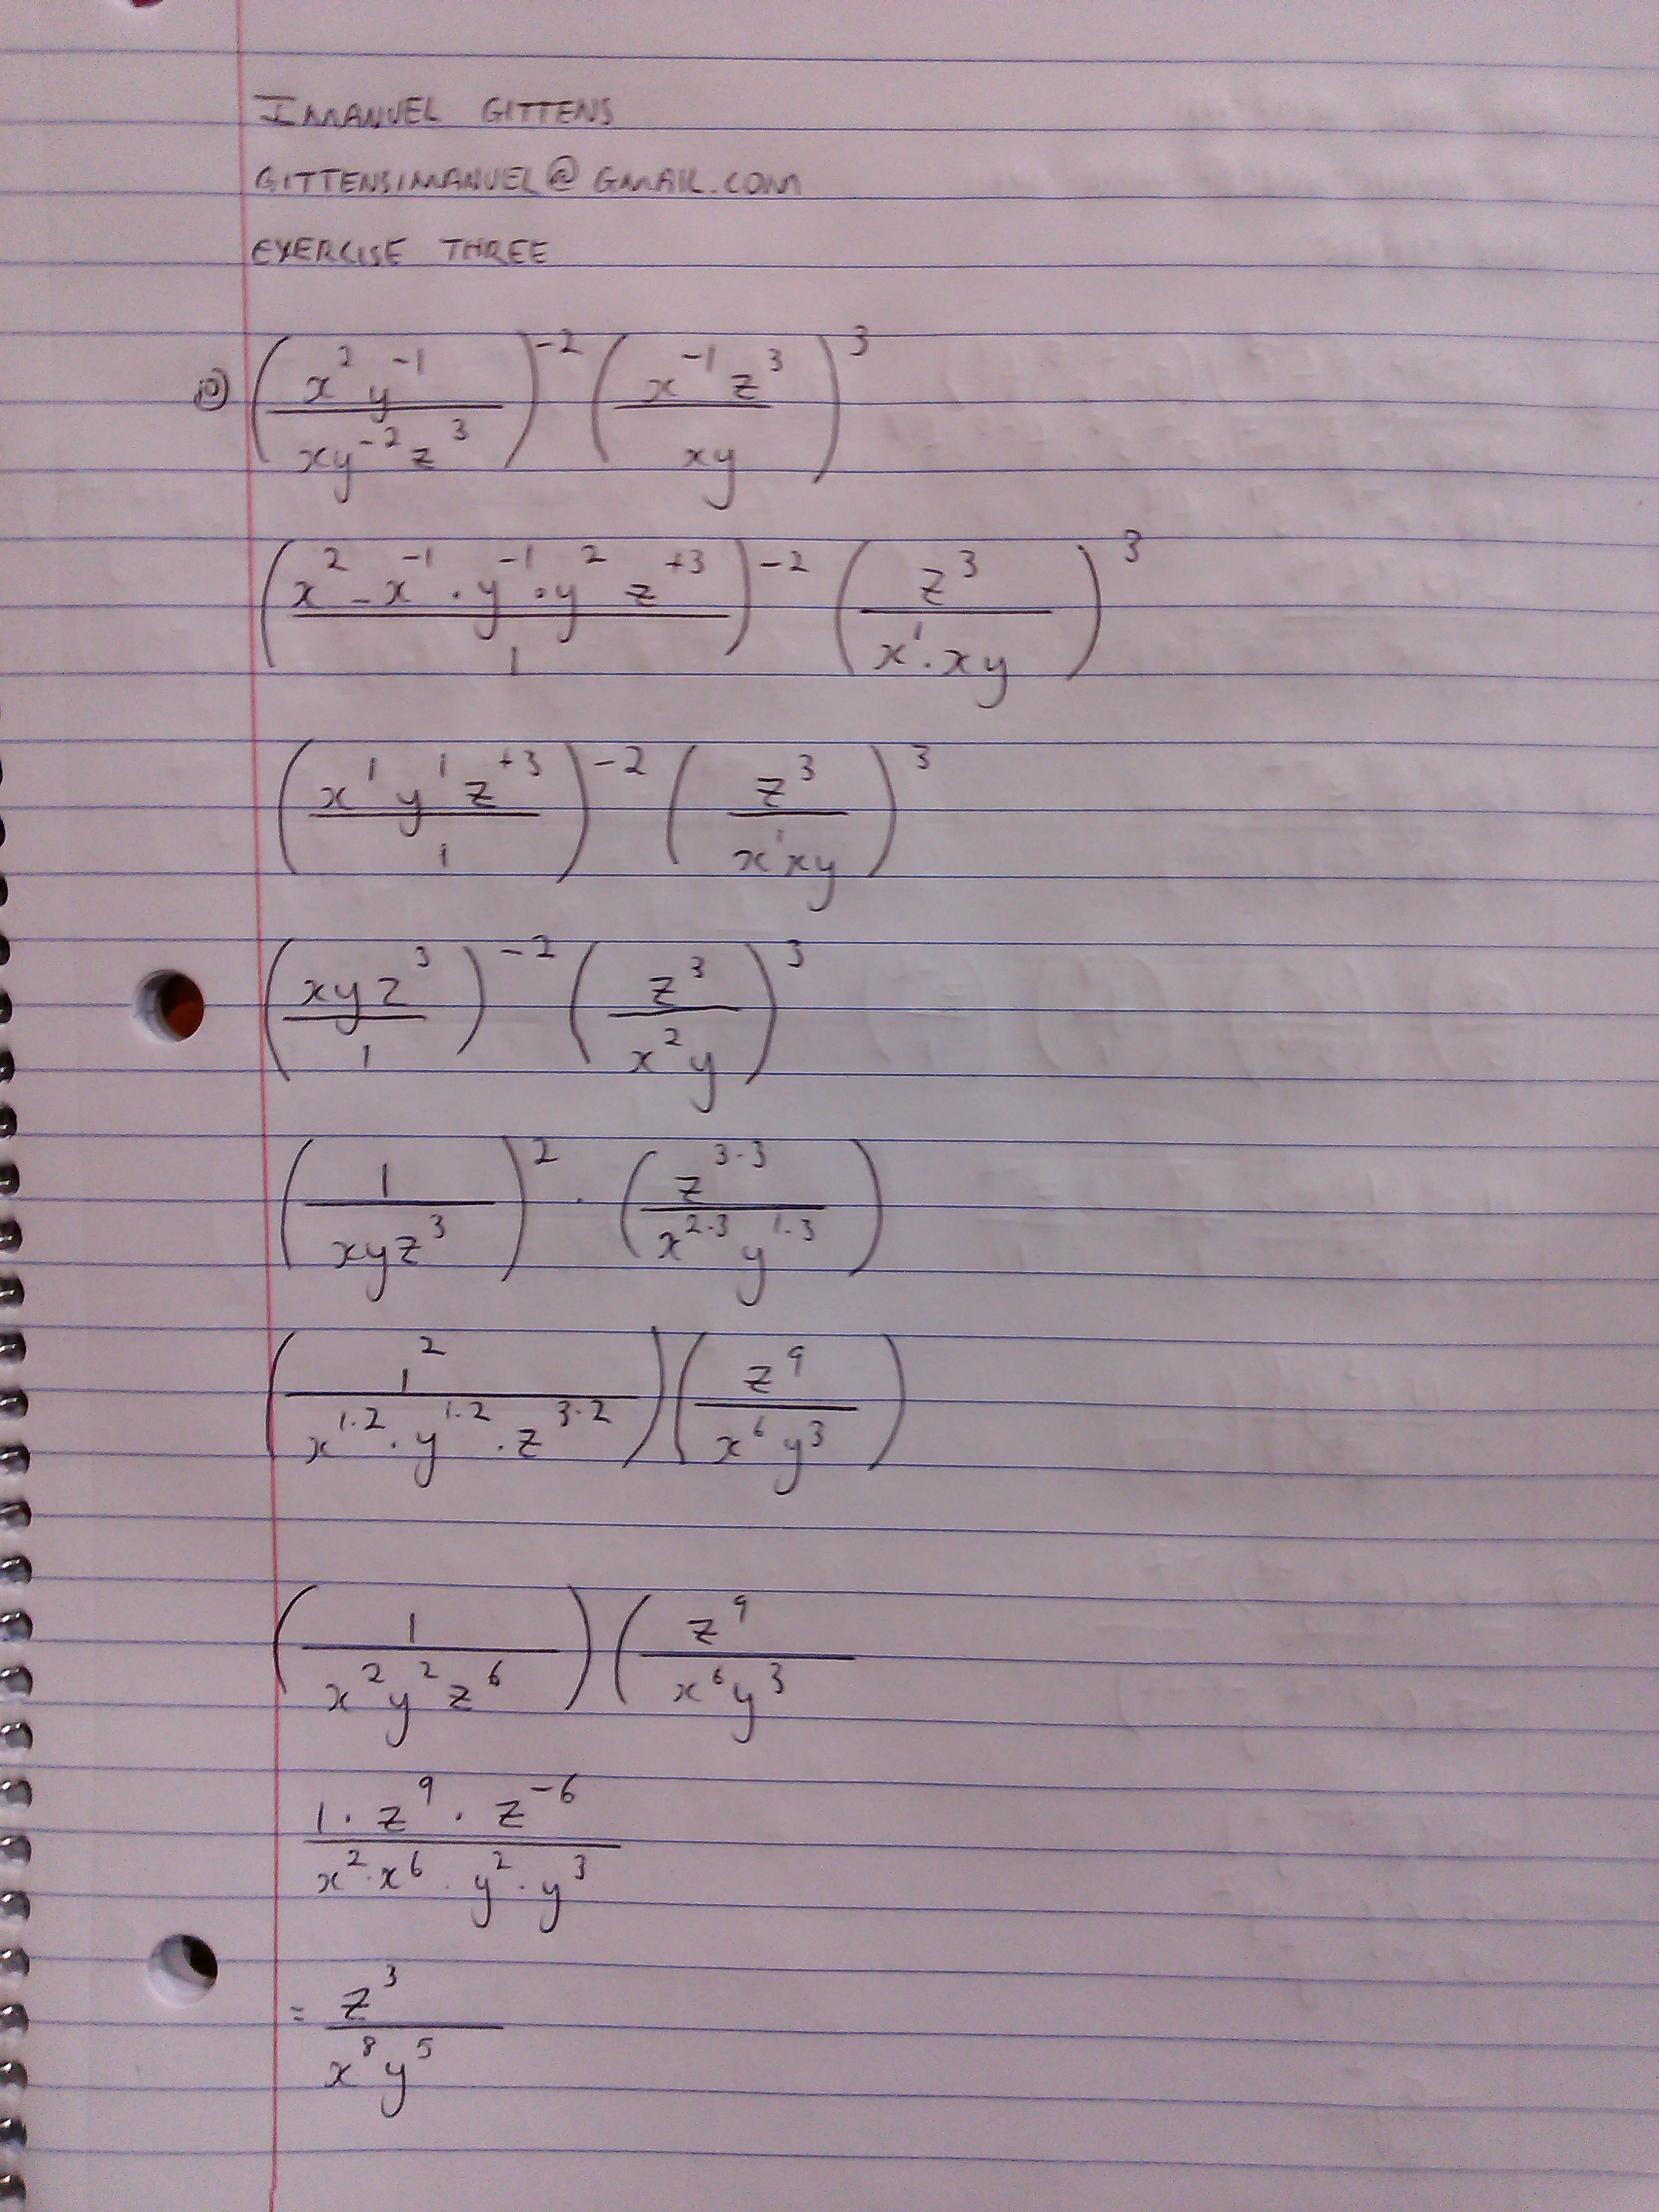 IMANUEL GITTENS
GITTENSIMANUEL@GMAIL.COM
EXERCISE THREE
10) (x^2 y^-1 / xy^-2 z^3)^-2 (x^-1 z^3 / xy)^3
(x^2 - x^-1 · y^-1 · y^2 z^+3 / 1)^-2 (z^3 / x^1 · xy)^3
(x^1 y^1 z^+3 / 1)^-2 (z^3 / x^1 xy)^3
(xyz^3 / 1)^-2 (z^3 / x^2 y)^3
(1 / xyz^3)^2 · (z^3·3 / x^2·3 y^1·3)
(1^2 / x^1·2 · y^1·2 · z^3·2) (z^9 / x^6 y^3)
(1 / x^2 y^2 z^6) (z^9 / x^6 y^3
1 · z^9 · z^-6 / x^2 · x^6 · y^2 · y^3
= z^3 / x^8 y^5